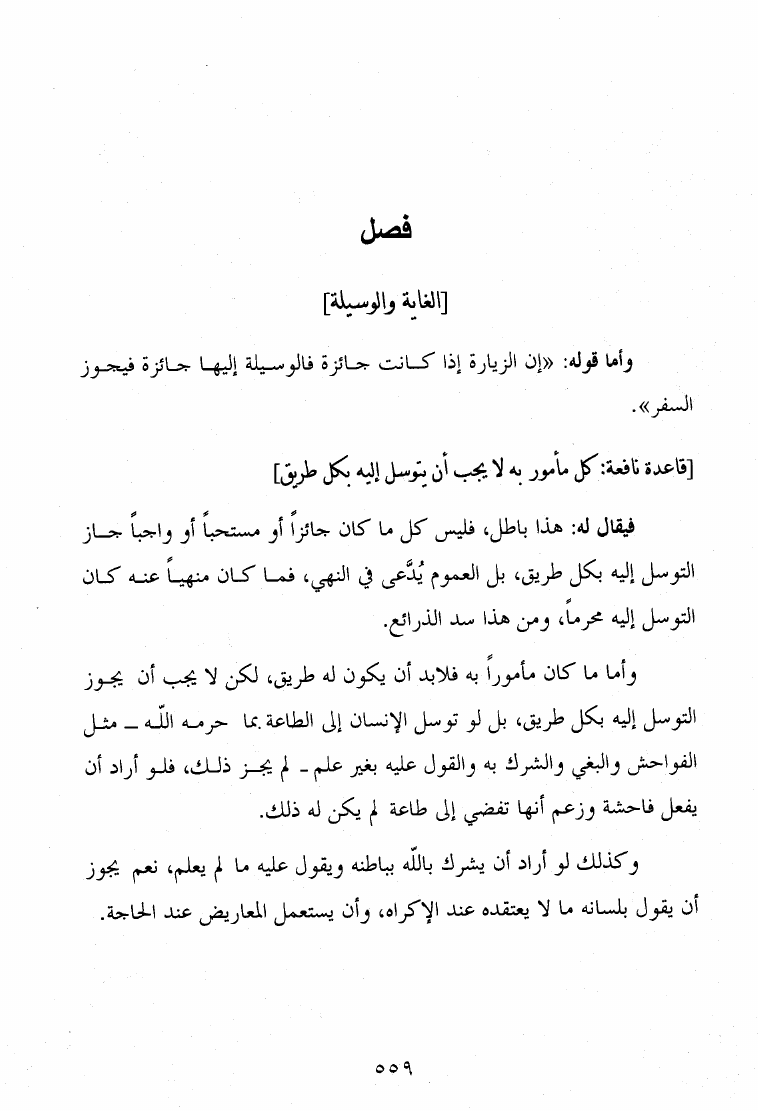 فصل
[الغاية والوسيلة]
وأما قوله: «إن الزيارة إذا كانت جائزة فالوسيلة إليها جائزة فيجوز
السفر».
[قاعدة نافعة: كل مأمور به لا يجب أن يتوسل إليه بكل طريق]
فيقال له: هذا باطل، فليس كل ما كان جائزاً أو مستحباً أو واجباً جاز
التوسل إليه بكل طريق، بل العموم يُدَّعى في النهي، فما كان منهياً عنه كان
التوسل إليه محرماً، ومن هذا سد الذرائع.
وأما ما كان مأموراً به فلابد أن يكون له طريق، لكن لا يجب أن يجوز
التوسل إليه بكل طريق، بل لو توسل الإنسان إلى الطاعة بما حرمه اللّه – مثل
الفواحش والبغي والشرك به والقول عليه بغير علم - لم يجز ذلك، فلو أراد أن
يفعل فاحشة وزعم أنها تفضي إلى طاعة لم يكن له ذلك.
وكذلك لو أراد أن يشرك باللّه بباطنه ويقول عليه ما لم يعلم، نعم يجوز
أن يقول بلسانه ما لا يعتقده عند الإكراه، وأن يستعمل المعاريض عند الحاجة.
٥٥٩